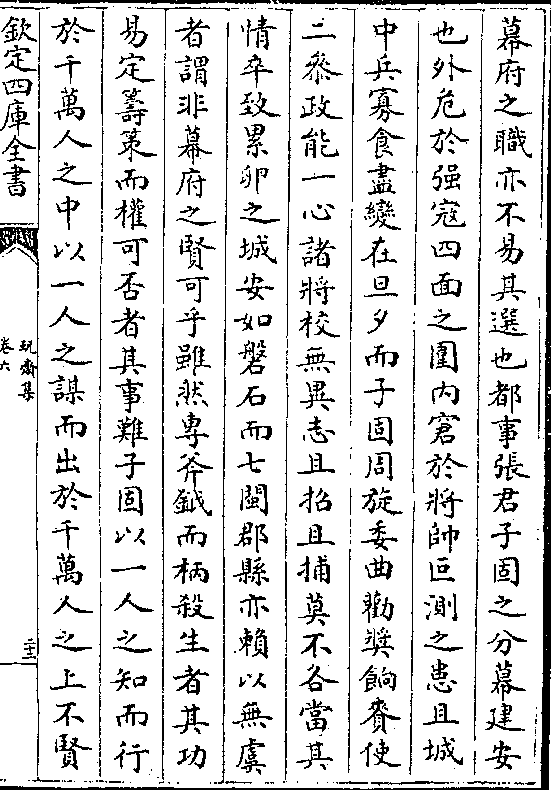 幕府之職亦不易其選也都事張君子固之分幕建安
也外危於强寇四面之圍内窘於將帥叵測之患且城
中兵寡食盡變在旦夕而子固周旋委曲勸奨餉賚使
二叅政能一心諸將校無異志且招且捕莫不各當其
情卒致累卵之城安如磐石而七閩郡縣亦賴以無虞
者謂非幕府之賢可乎雖然専斧鉞而柄殺生者其功
易定籌策而權可否者其事難子固以一人之知而行
於千萬人之中以一人之謀而出於千萬人之上不賢
欽定四庫全書
玩齋集
卷六
二十二